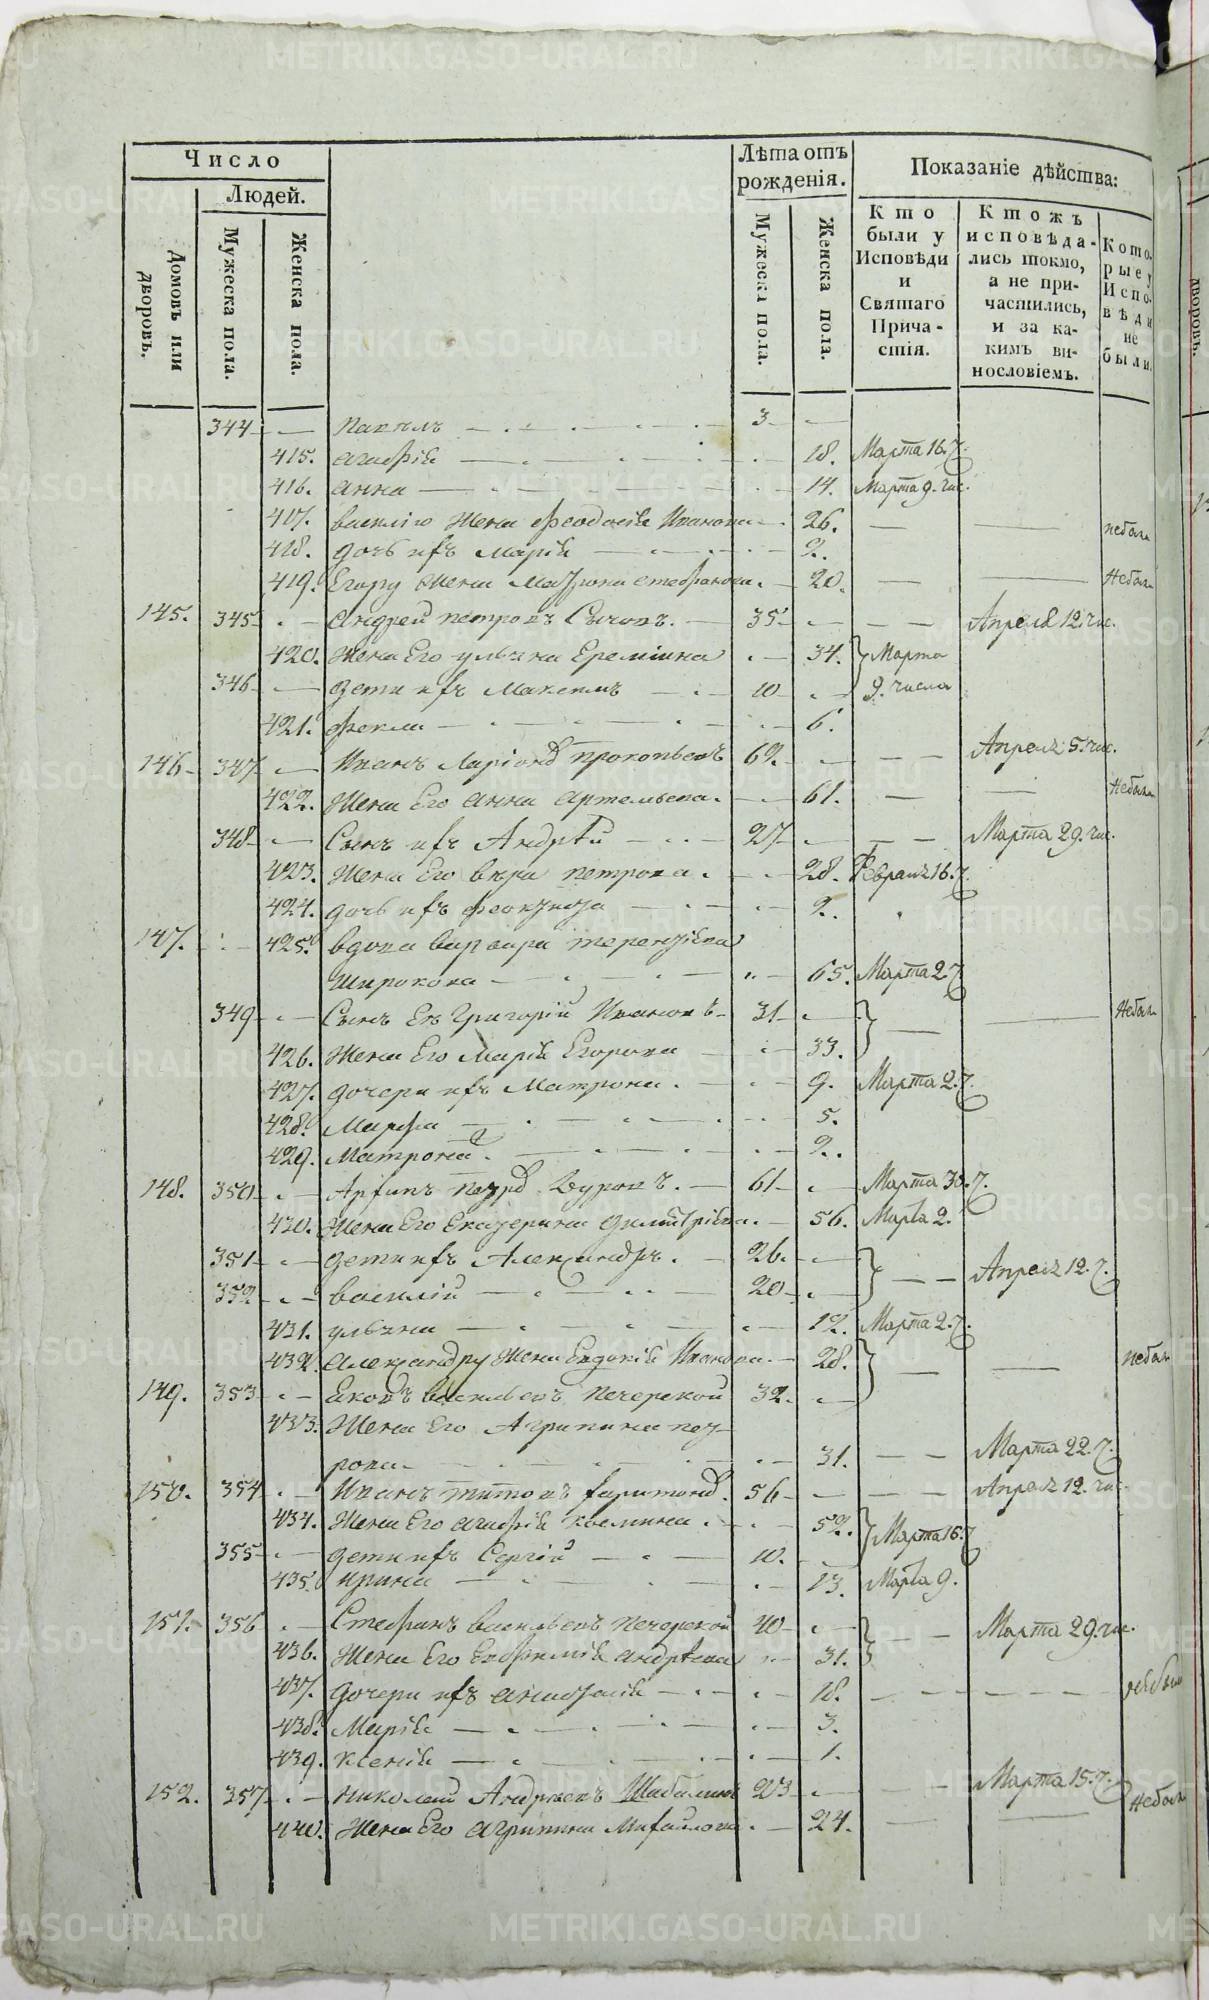 Число
Людей.
Домовъ или дворовъ.
Мужеска пола.
Женска пола.
Лѣта отъ рожденія.
Мужеска пола.
Женска пола.
Показаніе дѣйства:
Кто были у Исповѣди и Святаго Причастія.
Ктожъ исповѣдались токмо, а не причастились, и за какимъ винословіемъ.
Которые у Исповѣди не были.
344 — 3 —
415. Агафія — 18. Марта 16. ч.
416. Анна — 14. Марта 9. чис.
417. василію Жена Феодосія Иванова — 26. — — небыл
418. дочь ихъ Марія — 2.
419. Егору Жена Матрона Стефанова. — 20. — — Небыл
145. 345 — Андрей петровъ Сычовъ. — 35 — — — Апреля 12. чис.
420. Жена Его ульяна Еремѣина — 34. Марта
346 — дети ихъ Максимъ — 10 — 9. числа
421. Фекла — 6.
146 — 347 — Иванъ Ларіонов прокопьевъ 62. — — — Апреля 5. чис.
422. Жена Его Анна Артемьева. — 61. — — Небыл
348 — Сынъ ихъ Андрѣй — 27 — — — Марта 29. чис.
423. Жена Его вѣра петрова. — 28. Февраля 16. ч.
424. дочь ихъ — 2.
147. — 425. вдова варвара терентіева
Широкова — 65. Марта 2 ч.
349 — Сынъ Ея Григорій Ивановъ — 31 — — — Небыл
426. Жена Его Марія Егорова — 33.
427. дочери ихъ Матрона. — 9. Марта 2. ч.
428. Марфа — 5.
429. Матрона 2. — 2.
148. 350 — Архипъ петров Дуровъ. — 61 — — Марта 30. ч.
430. Жена Его Екатерина Димитріева. — 56. Марта 2.
351 — дети ихъ Александръ. — 26. — — — Апреля 12. ч.
352 — василій — 20 —
431. ульяна — 12. Марта 2. ч.
432. Александру Жена Евдокія Иванова — 28. — — небыл
149. 353 — Яковъ васильевъ Печерской 32. —
433. Жена Его Агрипина пет-
рова — 31. — — Марта 22. ч.
150. 354 — Иванъ титовъ харитонов. 56 — — — Апреля 12. чис.
434. Жена Его Агафія козмина. — 52. Марта 16. ч
355 — дети ихъ Сергій — 10. —
435. ирина — 13. Марта 9.
151. 356 — Стефанъ васильевъ Печерской 40 — — — Марта 29. чис.
436. Жена Его Евфимія Андрѣева — 31.
437. дочери ихъ Анастасія — 18. — — — — —
438. Марія — 3.
439. Ксенія — 1.
152. 357 — николай Андреевъ Шабалинъ 23 — — — Марта 15. ч.
440. Жена Его Агрипина Михайлова. — 24. — — Небыл
METRIKI.GASO-URAL.RU